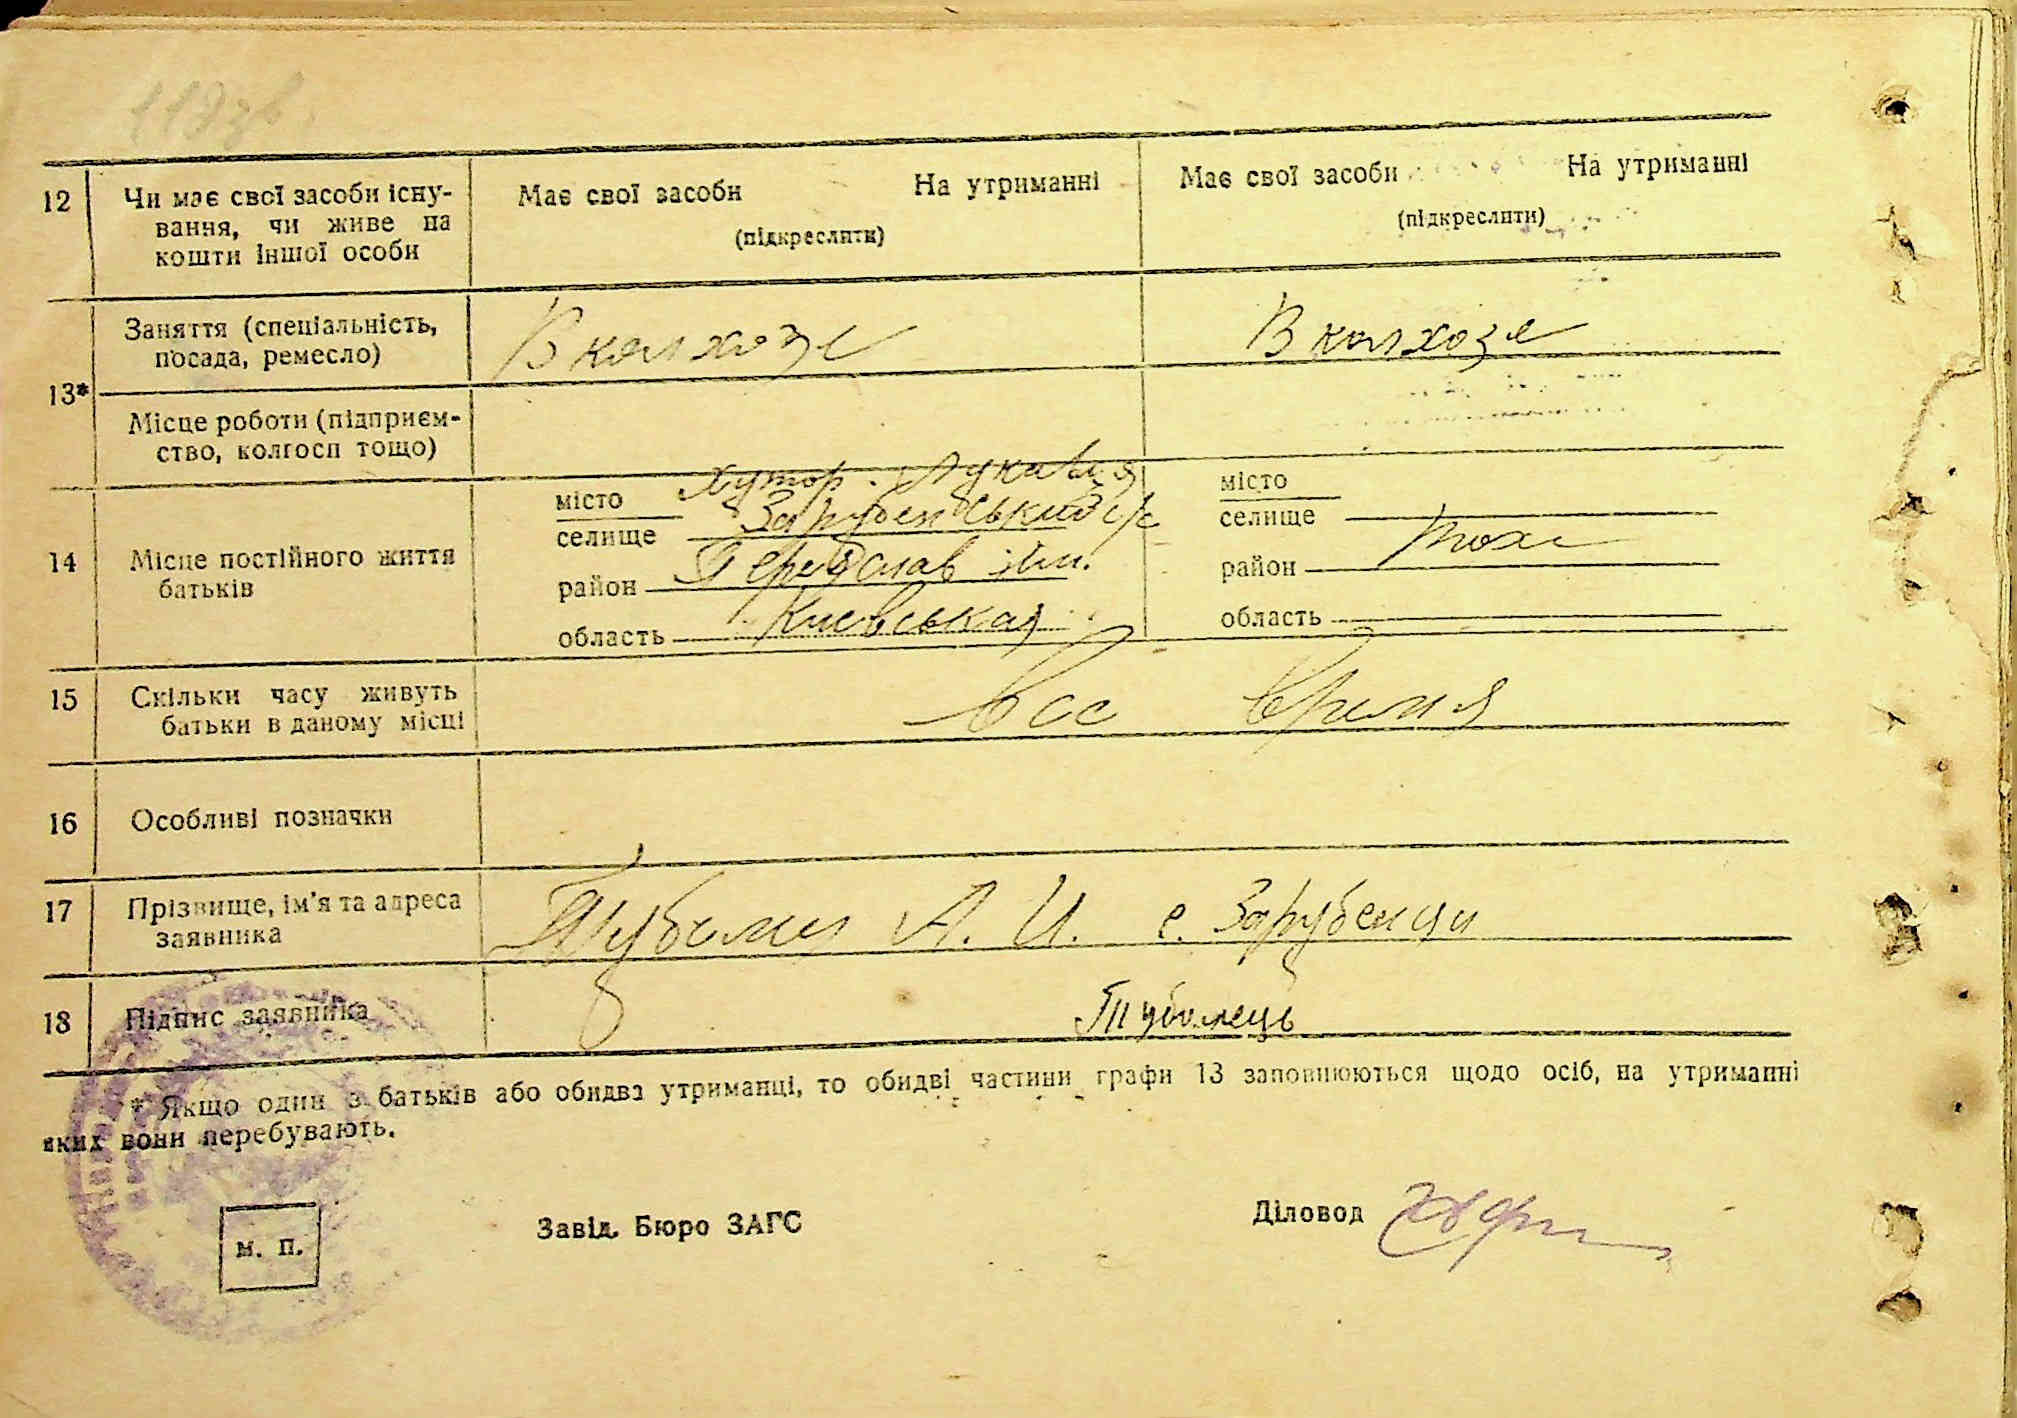 118зв
12 Чи має свої засоби існу- Має свої засоби На утриманні Має свої засоби На утриманні
вання, чи живе на (підкреслити) (підкреслити)
кошти іншої особи
Заняття (спеціальність, В колхозе В колхозе
посада, ремесло)
13*
Місце роботи (підприєм-
ство, колгосп тощо)
місто Хутор місто
селище Зарубенський с/с селище
14 Місце постійного життя
батьків
район Переяслав район тоже
область Киевськая область
15 Скільки часу живуть Все время
батьки в даному місці
16 Особливі позначки
17 Прізвище, ім'я та адреса А. И. с. Зарубенци
заявника
18 Підпис заявника Туболець
* Якщо один з батьків або обидва утриманці, то обидві частини графи 13 заповнюються щодо осіб, на утриманні
яких вони перебувають.
м. п. Завід. Бюро ЗАГС Діловод